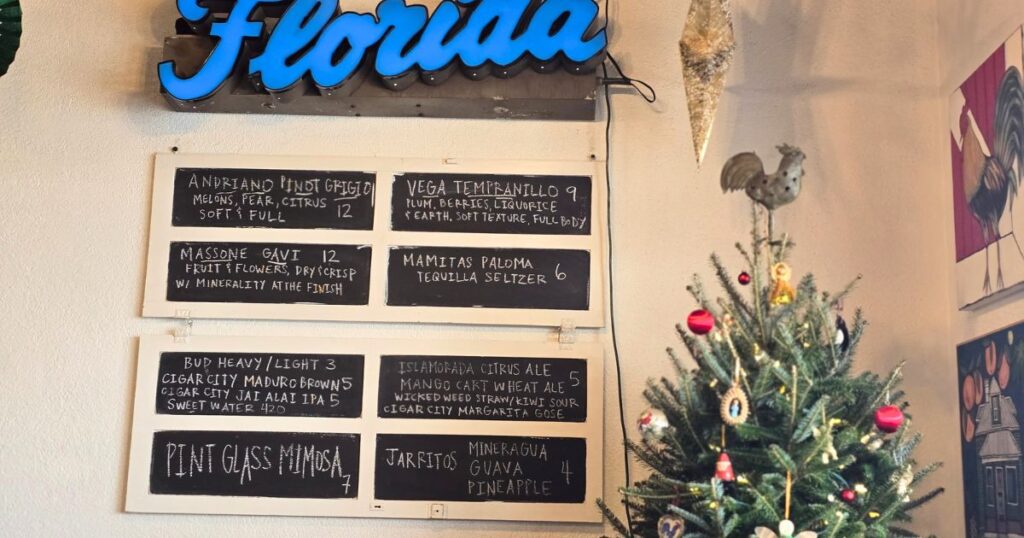 Florida
ANDRIANO PINOT GRIGIO
MELONS, PEAR, CITRUS
SOFT & FULL 12
VEGA TEMPRANILLO 9
PLUM, BERRIES, LIQUORICE
& EARTH, SOFT TEXTURE, FULL BODY
MASSONE GAVI 12
FRUIT & FLOWERS, DRY & CRISP
W/ MINERALITY AT THE FINISH
MAMITAS PALOMA
TEQUILLA SELTZER 6
BUD HEAVY/LIGHT 3
CIGAR CITY MADURO BROWN 5
CIGAR CITY JAI ALAI IPA 5
SWEET WATER 420
ISLAMORADA CITRUS ALE
MANGO CART WHEAT ALE 5
WICKED WEED STRAW/KIWI SOUR
CIGAR CITY MARGARITA GOSE
PINT GLASS MIMOSA 7
JARRITOS MINERAGUA
GUAVA 4
PINEAPPLE